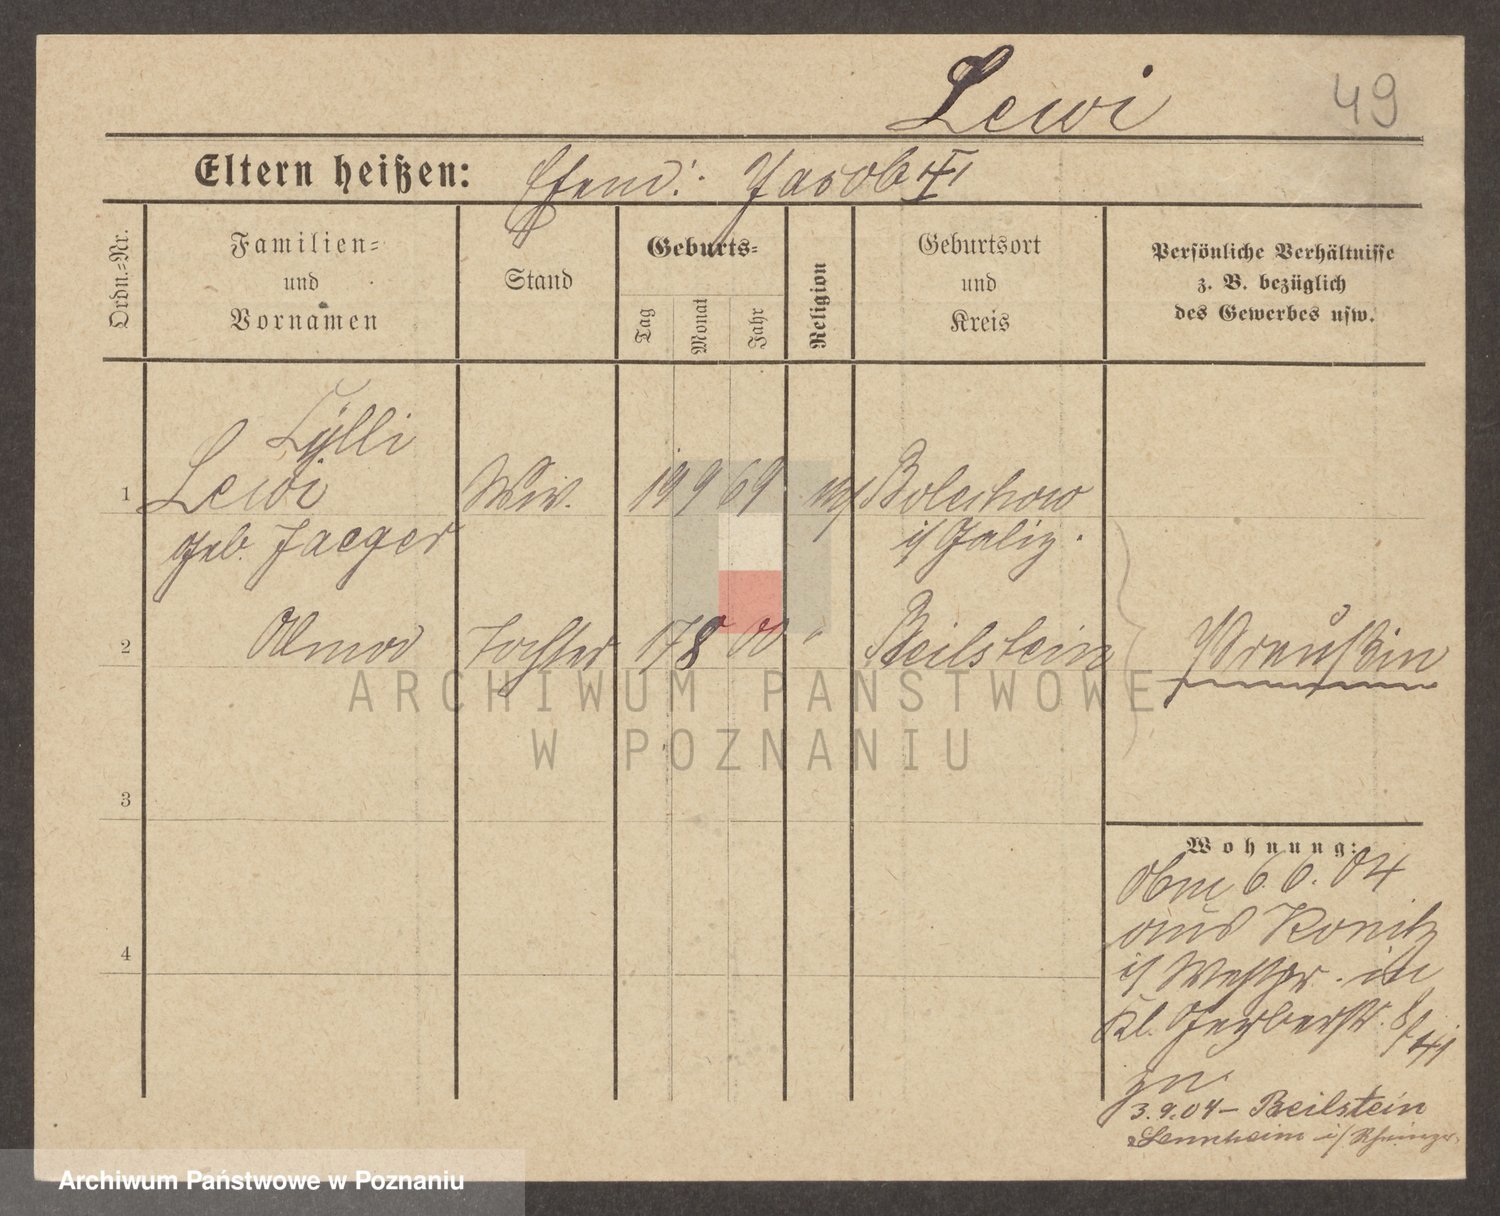 Lewi
49
Eltern heißen: Ehem: Jacob II
Ordn.-Nr.
Familien-
und
Vornamen
Stand
Geburts-
Tag
Monat
Jahr
Religion
Geburtsort
und
Kreis
Persönliche Verhältnisse
z. B. bezüglich
des Gewerbes usw.
Cylli
1 Lewi Ww. 19 9 69 Bolechow
geb. Jaeger i/ Galiz.
2 Tochter 17 8 00 " Beilstein Preußin
ARCHIWUM PAŃSTWOWE
W POZNANIU
3
Wohnung:
6.6.04
aus Konitz
4
i/ Westpr. in
Kl. Gerberstr. 8
3.9.04 – Beilstein
Archiwum Państwowe w Poznaniu